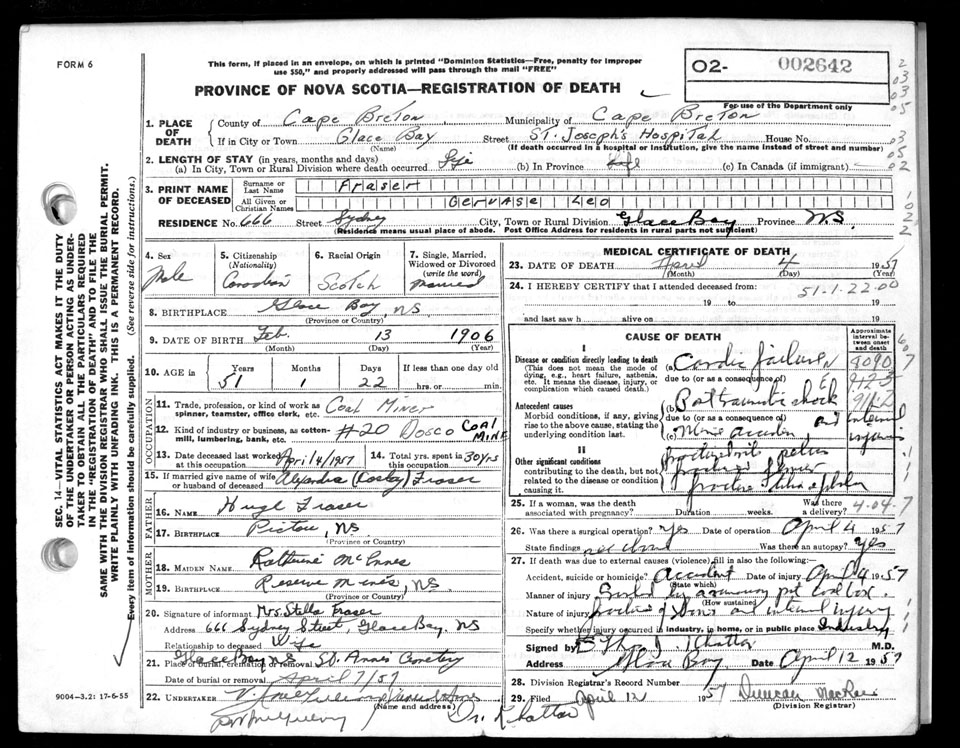 FORM 6
This form, if placed in an envelope, on which is printed "Dominion Statistics—Free, penalty for improper
use $50," and properly addressed will pass through the mail "FREE"
O2- 002642
PROVINCE OF NOVA SCOTIA—REGISTRATION OF DEATH
For use of the Department only
1. PLACE OF DEATH County of Cape Breton Municipality of Cape Breton
If in City or Town Glace Bay Street St. Joseph's Hospital House No.
(Name) (If death occurred in a hospital or institution, give the name instead of street and number)
2. LENGTH OF STAY (in years, months and days)
(a) In City, Town or Rural Division where death occurred Life (b) In Province Life (c) In Canada (if immigrant)
3. PRINT NAME OF DECEASED Surname or Last Name Fraser
All Given or Christian Names Gervase Leo
RESIDENCE No. 666 Street Sydney City, Town or Rural Division Glace Bay Province N.S.
(Residence means usual place of abode. Post Office Address for residents in rural parts not sufficient)
4. Sex Male
5. Citizenship (Nationality) Canadian
6. Racial Origin Scotch
7. Single, Married, Widowed or Divorced (write the word) Married
8. BIRTHPLACE Glace Bay, NS
(Province or Country)
9. DATE OF BIRTH Feb. 13 1906
(Month) (Day) (Year)
10. AGE in Years Months Days If less than one day old
51 1 22 hrs. or min.
OCCUPATION
11. Trade, profession or kind of work as spinner, teamster, office clerk, etc. Coal Miner
12. Kind of industry or business, as cotton-mill, lumbering, bank, etc. #20 Dosco COAL MINE
13. Date deceased last worked at this occupation April 4/1957 14. Total yrs. spent in this occupation 30 yrs
15. If married give name of wife or husband of deceased Fraser
FATHER
16. NAME Hugh Fraser
17. BIRTHPLACE Pictou, NS
(Province or Country)
MOTHER
18. MAIDEN NAME Katherine McInnes
19. BIRTHPLACE Reserve Mines, NS
(Province or Country)
20. Signature of informant Mrs. Stella Fraser
Address 666 Sydney Street, Glace Bay, NS
Relationship to deceased Wife
21. Place of burial, cremation or removal Glace Bay N.S. St. Annes Cemetery
Date of burial or removal April 7/57
22. UNDERTAKER
(Name and address)
9004—3.2: 17-6-55
MEDICAL CERTIFICATE OF DEATH
23. DATE OF DEATH April 4 1957
(Month) (Day) (Year)
24. I HEREBY CERTIFY that I attended deceased from: 51-1-22-00
19 to 19
and last saw h alive on 19
CAUSE OF DEATH
Approximate interval between onset and death
I
Disease or condition directly leading to death
(This does not mean the mode of dying, e.g., heart failure, asthenia, etc. It means the disease, injury, or complication which caused death.)
(a) Cardiac failure
due to (or as a consequence of)
Antecedent causes
Morbid conditions, if any, giving rise to the above cause, stating the underlying condition last.
(b) Post traumatic shock
due to (or as a consequence of) and internal injuries
(c) Mine accident
II
Other significant conditions
contributing to the death, but not related to the disease or condition causing it.
25. If a woman, was the death associated with pregnancy? Duration weeks. Was there a delivery? 4-04-7
26. Was there a surgical operation? Yes Date of operation April 4 1957
State findings Was there an autopsy? Yes
27. If death was due to external causes (violence) fill in also the following:
Accident, suicide or homicide? Accident Date of injury April 4 1957
(State which)
Manner of injury
(How sustained)
Nature of injury fracture of and internal injury
Specify whether injury occurred in industry, in home, or in public place Industry
Signed by M.D.
Address Glace Bay Date April 12 1957
28. Division Registrar's Record Number
29. Filed April 12 1957 Duncan MacRae
(Division Registrar)
Dr. Khattar
SEC. 14—VITAL STATISTICS ACT MAKES IT THE DUTY
OF THE UNDERTAKER OR PERSON ACTING AS UNDER-
TAKER TO OBTAIN ALL THE PARTICULARS REQUIRED
IN THE "REGISTRATION OF DEATH" AND TO FILE THE
SAME WITH THE DIVISION REGISTRAR WHO SHALL ISSUE THE BURIAL PERMIT.
WRITE PLAINLY WITH UNFADING INK. THIS IS A PERMANENT RECORD.
Every item of information should be carefully supplied. (See reverse side for instructions.)